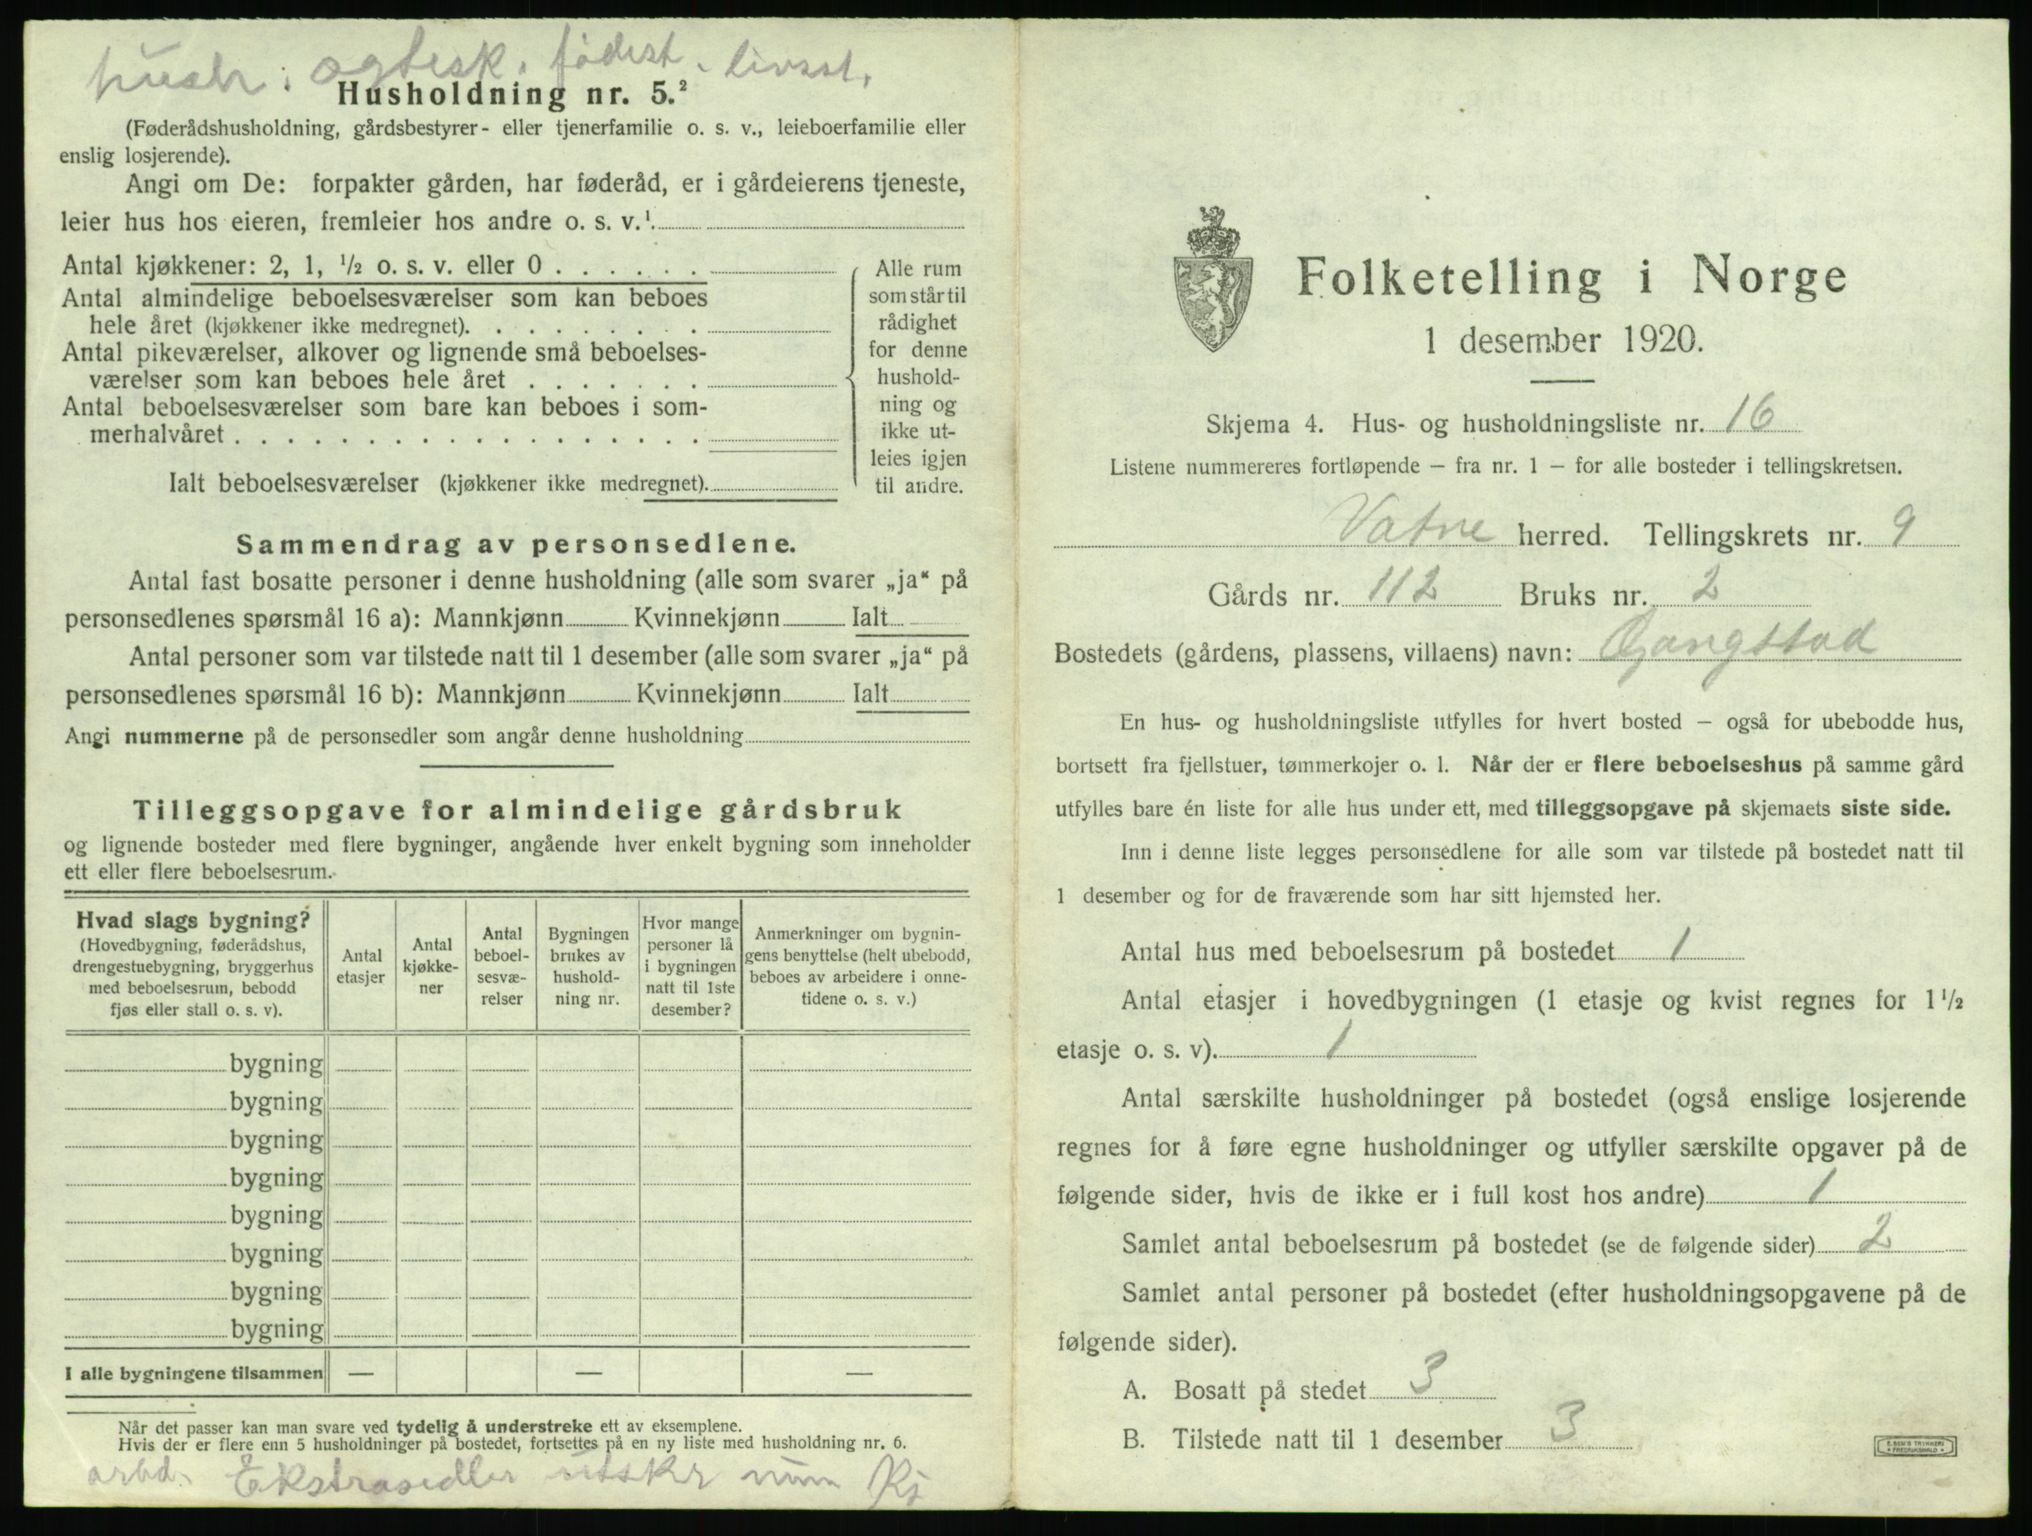 husb. ogtesk. fødest. livsst.
Husholdning nr. 5.²
(Føderådshusholdning, gårdsbestyrer- eller tjenerfamilie o. s. v., leieboerfamilie eller
enslig losjerende).
Angi om De: forpakter gården, har føderåd, er i gårdeierens tjeneste,
leier hus hos eieren, fremleier hos andre o. s. v.¹
Antal kjøkkener: 2, 1, ½ o. s. v. eller 0 . . . . . .
Antal almindelige beboelsesværelser som kan beboes
hele året (kjøkkener ikke medregnet). . . . . . . . .
Antal pikeværelser, alkover og lignende små beboelses-
værelser som kan beboes hele året . . . . . . .
Antal beboelsesværelser som bare kan beboes i som-
merhalvåret . . . . . . . . . . . . . . . . . .
Ialt beboelsesværelser (kjøkkener ikke medregnet).
Alle rum
som står til
rådighet
for denne
hushold-
ning og
ikke ut-
leies igjen
til andre.
Sammendrag av personsedlene.
Antal fast bosatte personer i denne husholdning (alle som svarer „ja“ på
personsedlenes spørsmål 16 a): Mannkjønn Kvinnekjønn Ialt
Antal personer som var tilstede natt til 1 desember (alle som svarer „ja“ på
personsedlenes spørsmål 16 b): Mannkjønn Kvinnekjønn Ialt
Angi nummerne på de personsedler som angår denne husholdning
Tilleggsopgave for almindelige gårdsbruk
og lignende bosteder med flere bygninger, angående hver enkelt bygning som inneholder
ett eller flere beboelsesrum.
Hvad slags bygning?
(Hovedbygning, føderådshus,
drengestuebygning, bryggerhus
med beboelsesrum, bebodd
fjøs eller stall o. s. v).
Antal
etasjer
Antal
kjøkke-
ner
Antal
beboel-
sesvæ-
relser
Bygningen
brukes av
hushold-
ning nr.
Hvor mange
personer lå
i bygningen
natt til 1ste
desember?
Anmerkninger om bygnin-
gens benyttelse (helt ubebodd,
beboes av arbeidere i onne-
tidene o. s. v.)
bygning
bygning
bygning
bygning
bygning
bygning
bygning
bygning
I alle bygningene tilsammen — — —
Når det passer kan man svare ved tydelig å understreke ett av eksemplene.
Hvis der er flere enn 5 husholdninger på bostedet, fortsettes på en ny liste med husholdning nr. 6.
arbd. Ekstrasedler utskr num Kj
Folketelling i Norge
1 desember 1920.
Skjema 4. Hus- og husholdningsliste nr. 16
Listene nummereres fortløpende – fra nr. 1 – for alle bosteder i tellingskretsen.
Vatne herred. Tellingskrets nr. 9
Gårds nr. 112 Bruks nr. 2
Bostedets (gårdens, plassens, villaens) navn: Gangstad
En hus- og husholdningsliste utfylles for hvert bosted – også for ubebodde hus,
bortsett fra fjellstuer, tømmerkojer o. l. Når der er flere beboelseshus på samme gård
utfylles bare én liste for alle hus under ett, med tilleggsopgave på skjemaets siste side.
Inn i denne liste legges personsedlene for alle som var tilstede på bostedet natt til
1 desember og for de fraværende som har sitt hjemsted her.
Antal hus med beboelsesrum på bostedet 1
Antal etasjer i hovedbygningen (1 etasje og kvist regnes for 1½
etasje o. s. v). 1
Antal særskilte husholdninger på bostedet (også enslige losjerende
regnes for å føre egne husholdninger og utfyller særskilte opgaver på de
følgende sider, hvis de ikke er i full kost hos andre) 1
Samlet antal beboelsesrum på bostedet (se de følgende sider) 2
Samlet antal personer på bostedet (efter husholdningsopgavene på de
følgende sider).
A. Bosatt på stedet 3
B. Tilstede natt til 1 desember 3
E. SEM'S TRYKKERI
FREDRIKSHALD